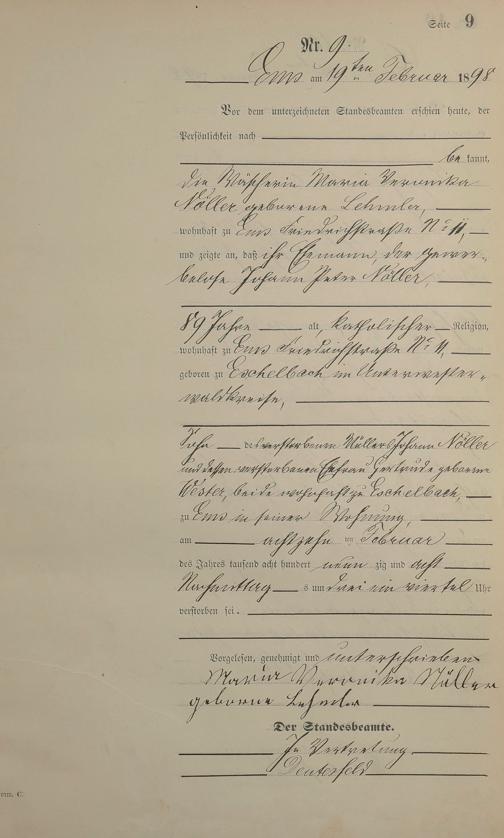 Seite 9
Nr. 9.
Ems am 19ten Februar 1898
Vor dem unterzeichneten Standesbeamten erschien heute, der
Persönlichkeit nach
bekannt,
die Wäscherin Maria Veronika
Nöller geborene Lehmler,
wohnhaft zu Ems Friedrichstraße No 11,
und zeigte an, daß ihr Ehemann, der gewer-
belose Johann Peter Nöller,
89 Jahre alt, katholischer Religion,
wohnhaft zu Ems Friedrichstraße No 11,
geboren zu Eschelbach im Unterwester-
waldkreise,
Sohn des verstorbenen Müllers Johann Nöller
und dessen verstorbenen Ehefrau Gertrude geborene
Wester, beide wohnhaft zu Eschelbach,
zu Ems in seiner Wohnung,
am achtzehn ten Februar
des Jahres tausend acht hundert neun zig und acht
Nachmittags um drei ein viertel Uhr
verstorben sei.
Vorgelesen, genehmigt und unterschrieben
Maria Veronika Nöller
geborne Lehmler
Der Standesbeamte.
In Vertretung